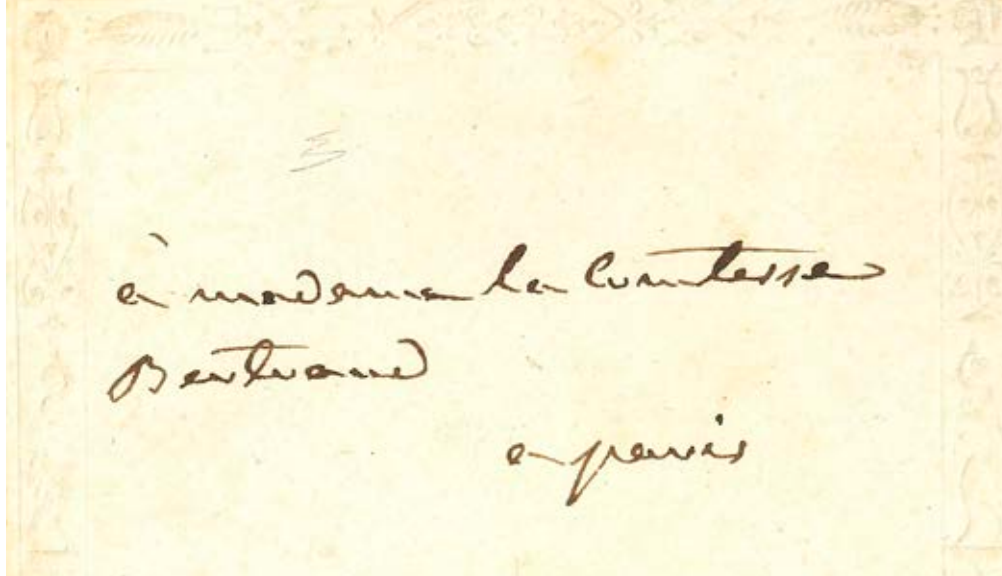 à madame la Comtesse
Bertrand
a paris